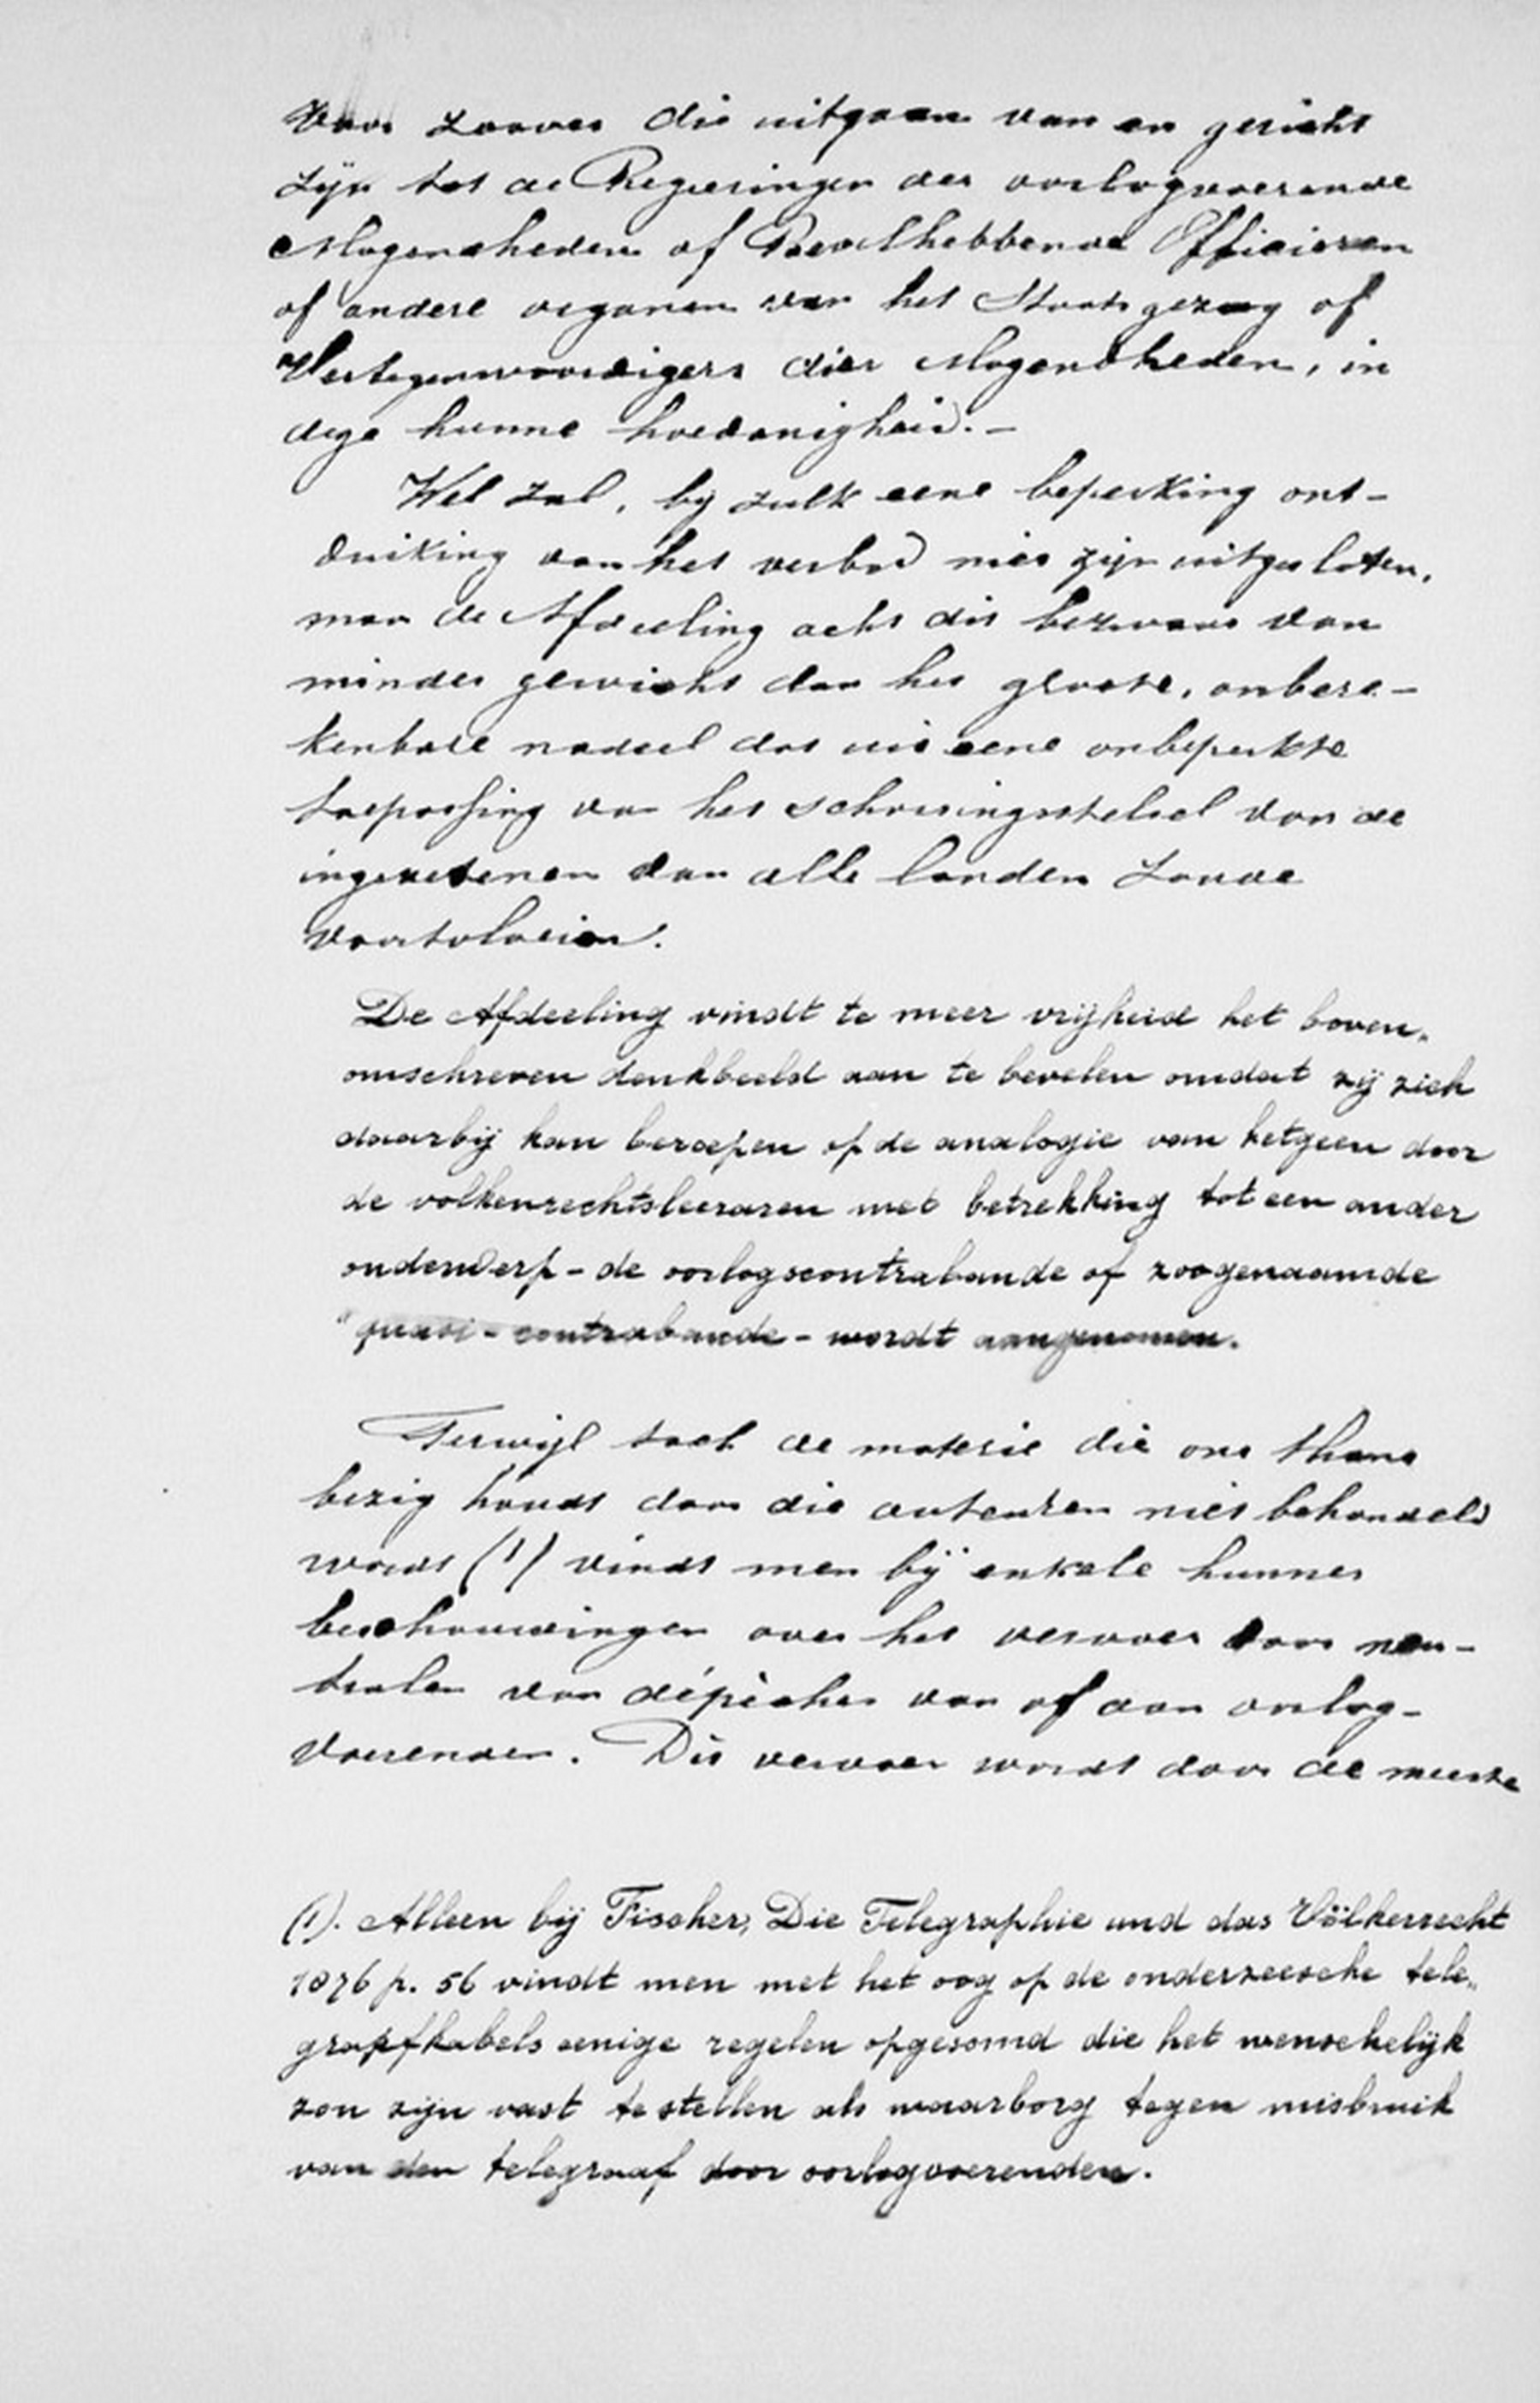 voor zoover die uitgaan van en gericht
zijn tot de Regeeringen der oorlogvoerende
Mogendheden of Bevelhebbende Officieren
of andere organen van het Staatsgezag of
Vertegenwoordigers dier Mogendheden, in
deze hunne hoedanigheid. –
Wel zal, bij zulk eene beperking ont-
duiking van het verbod niet zijn uitgesloten,
maar de Afdeeling acht dit bezwaar van
minder gewicht dan het groote, onbere-
kenbare nadeel dat uit eene onbeperkte
toepassing van het schorsingsstelsel voor de
ingezetenen van alle landen zoude
voortvloeien.
De Afdeeling vindt te meer vrijheid het boven-
omschreven denkbeeld aan te bevelen omdat zij zich
daarbij kan beroepen op de analogie van hetgeen door
de volkenrechtsleeraren met betrekking tot een ander
onderwerp – de oorlogscontrabande of zoogenaamde
"quasi-contrabande – wordt aangenomen.
Terwijl toch de materie die ons thans
bezig houdt door die auteuren niet behandeld
wordt (1) vindt men bij enkele hunner
beschouwingen over het vervoer door neu-
tralen van dépêches van of aan oorlog-
voerenden. Dit vervoer wordt door de meeste
(1). Alleen bij Fischer, Die Telegraphie und das Völkerrecht
1876 p. 56 vindt men met het oog op de onderzeesche tele-
graafkabels eenige regelen opgesomd die het wenschelijk
zou zijn vast te stellen als waarborg tegen misbruik
van den telegraaf door oorlogvoerenden.